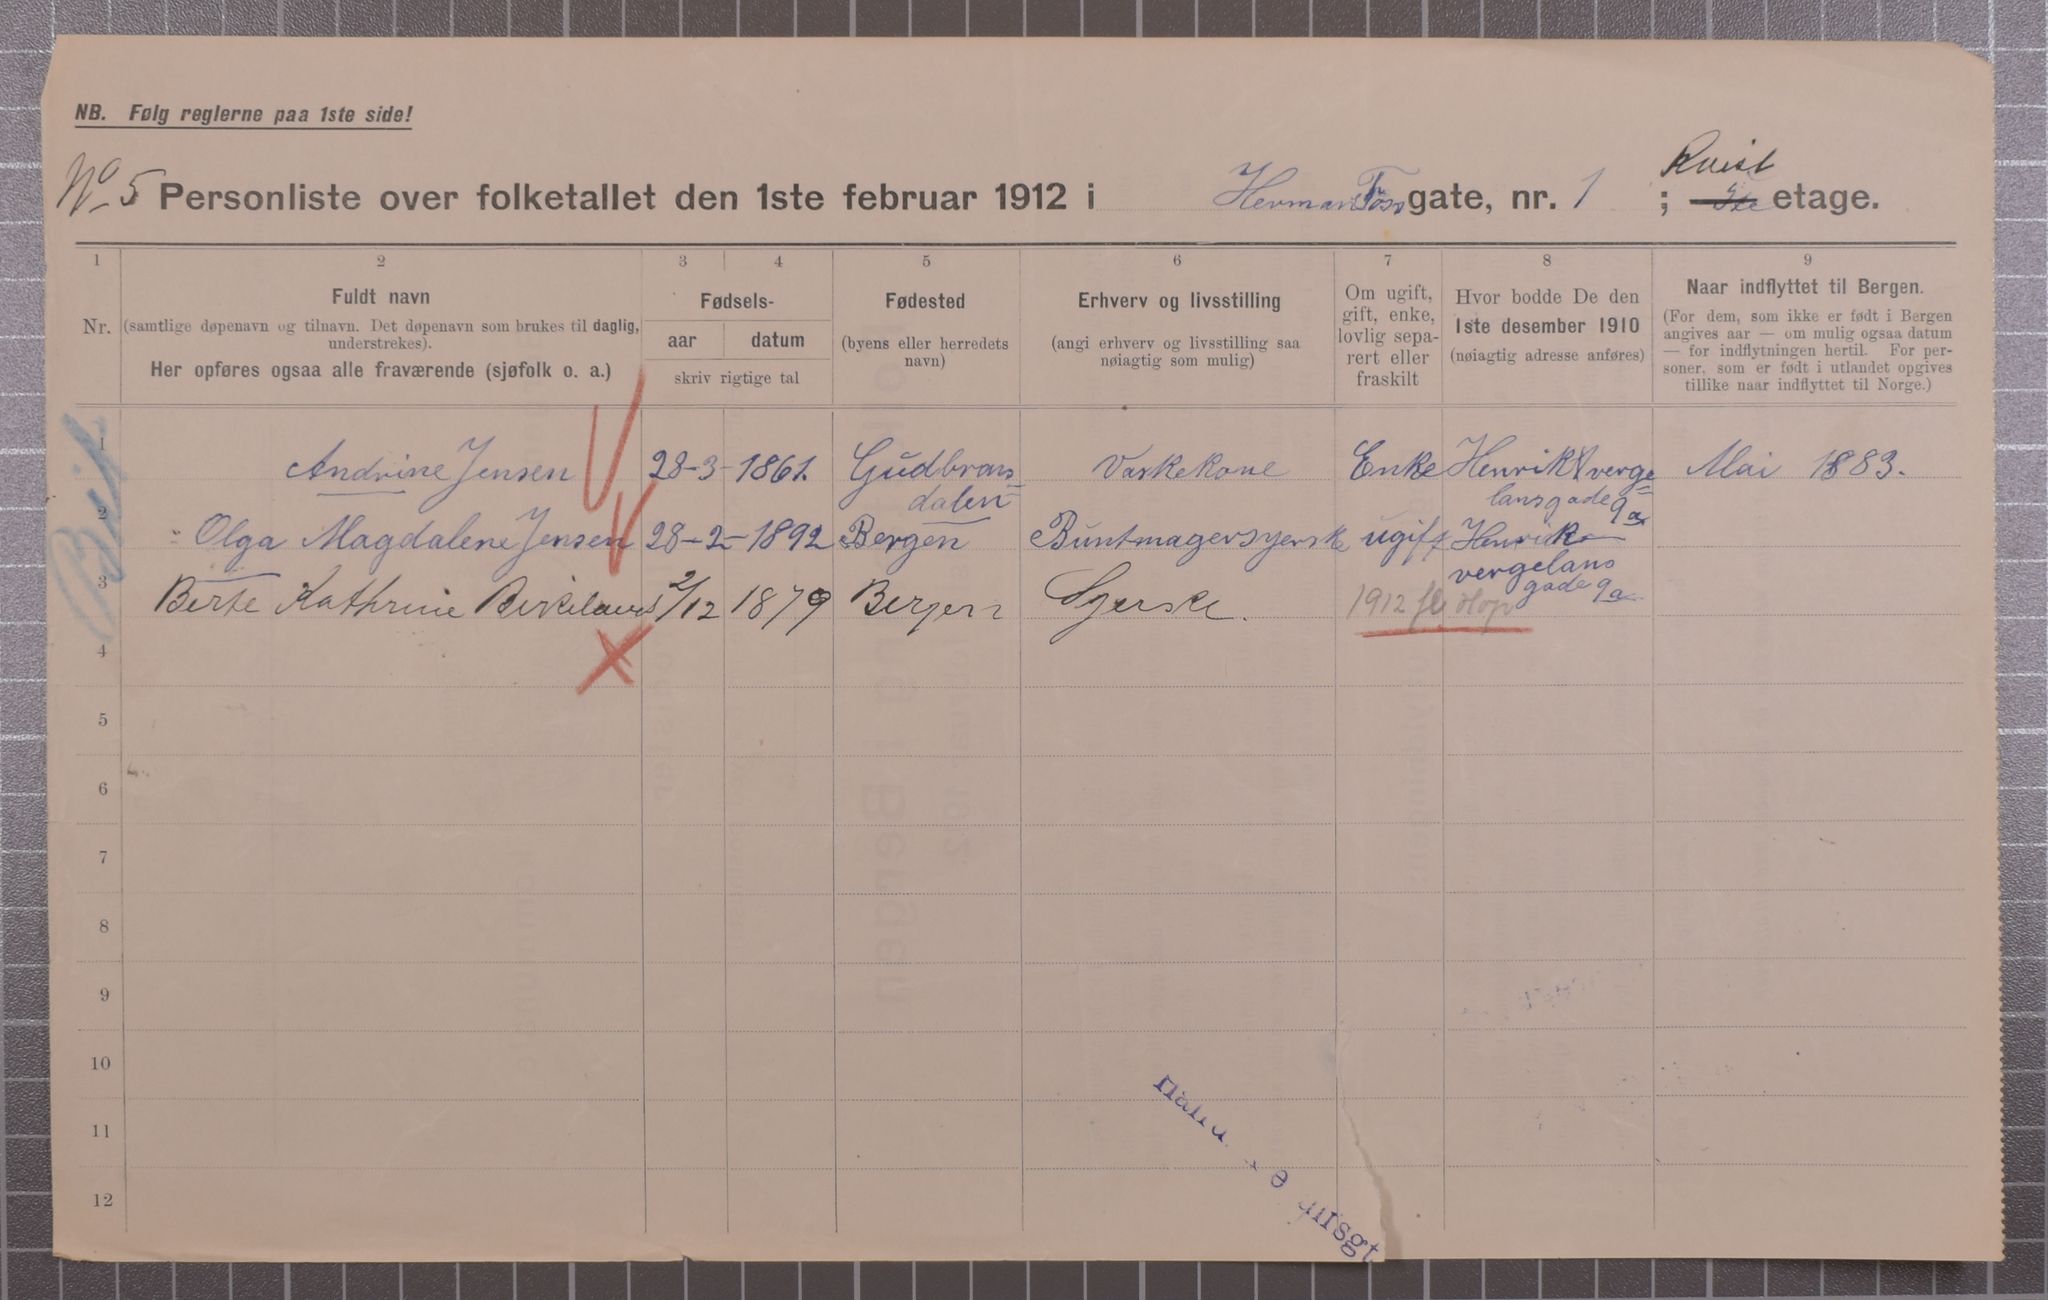 NB. Følg reglerne paa 1ste side!
No 5 Personliste over folketallet den 1ste februar 1912 i Herman Foss gate, nr. 1 ; Kvist etage.
1 2 3 4 5 6 7 8 9
Nr.
Fuldt navn
(samtlige døpenavn og tilnavn. Det døpenavn som brukes til daglig,
understrekes).
Her opføres ogsaa alle fraværende (sjøfolk o. a.)
Fødsels-
aar datum
skriv rigtige tal
Fødested
(byens eller herredets
navn)
Erhverv og livsstilling
(angi erhverv og livsstilling saa
nøiagtig som mulig)
Om ugift,
gift, enke,
lovlig sepa-
rert eller
fraskilt
Hvor bodde De den
1ste desember 1910
(nøiagtig adresse anføres)
Naar indflyttet til Bergen.
(For dem, som ikke er født i Bergen
angives aar — om mulig ogsaa datum
— for indflytningen hertil. For per-
soner, som er født i utlandet opgives
tillike naar indflyttet til Norge.)
1 Andrine Jensen 28-3-1861. Gudbrans= Vaskekone Enke Henrik verge= Mai 1883.
dalen lansgade 9a
2 Olga Magdalene Jensen 28-2-1892 Bergen Buntmagersyerske ugift Henrik
vergelans
gade 9a
3 Berte Kathrine Birkeland 2/12 1879 Bergen Syerske. 1912 fl Hop
4
5
6
7
8
9
10
11
12